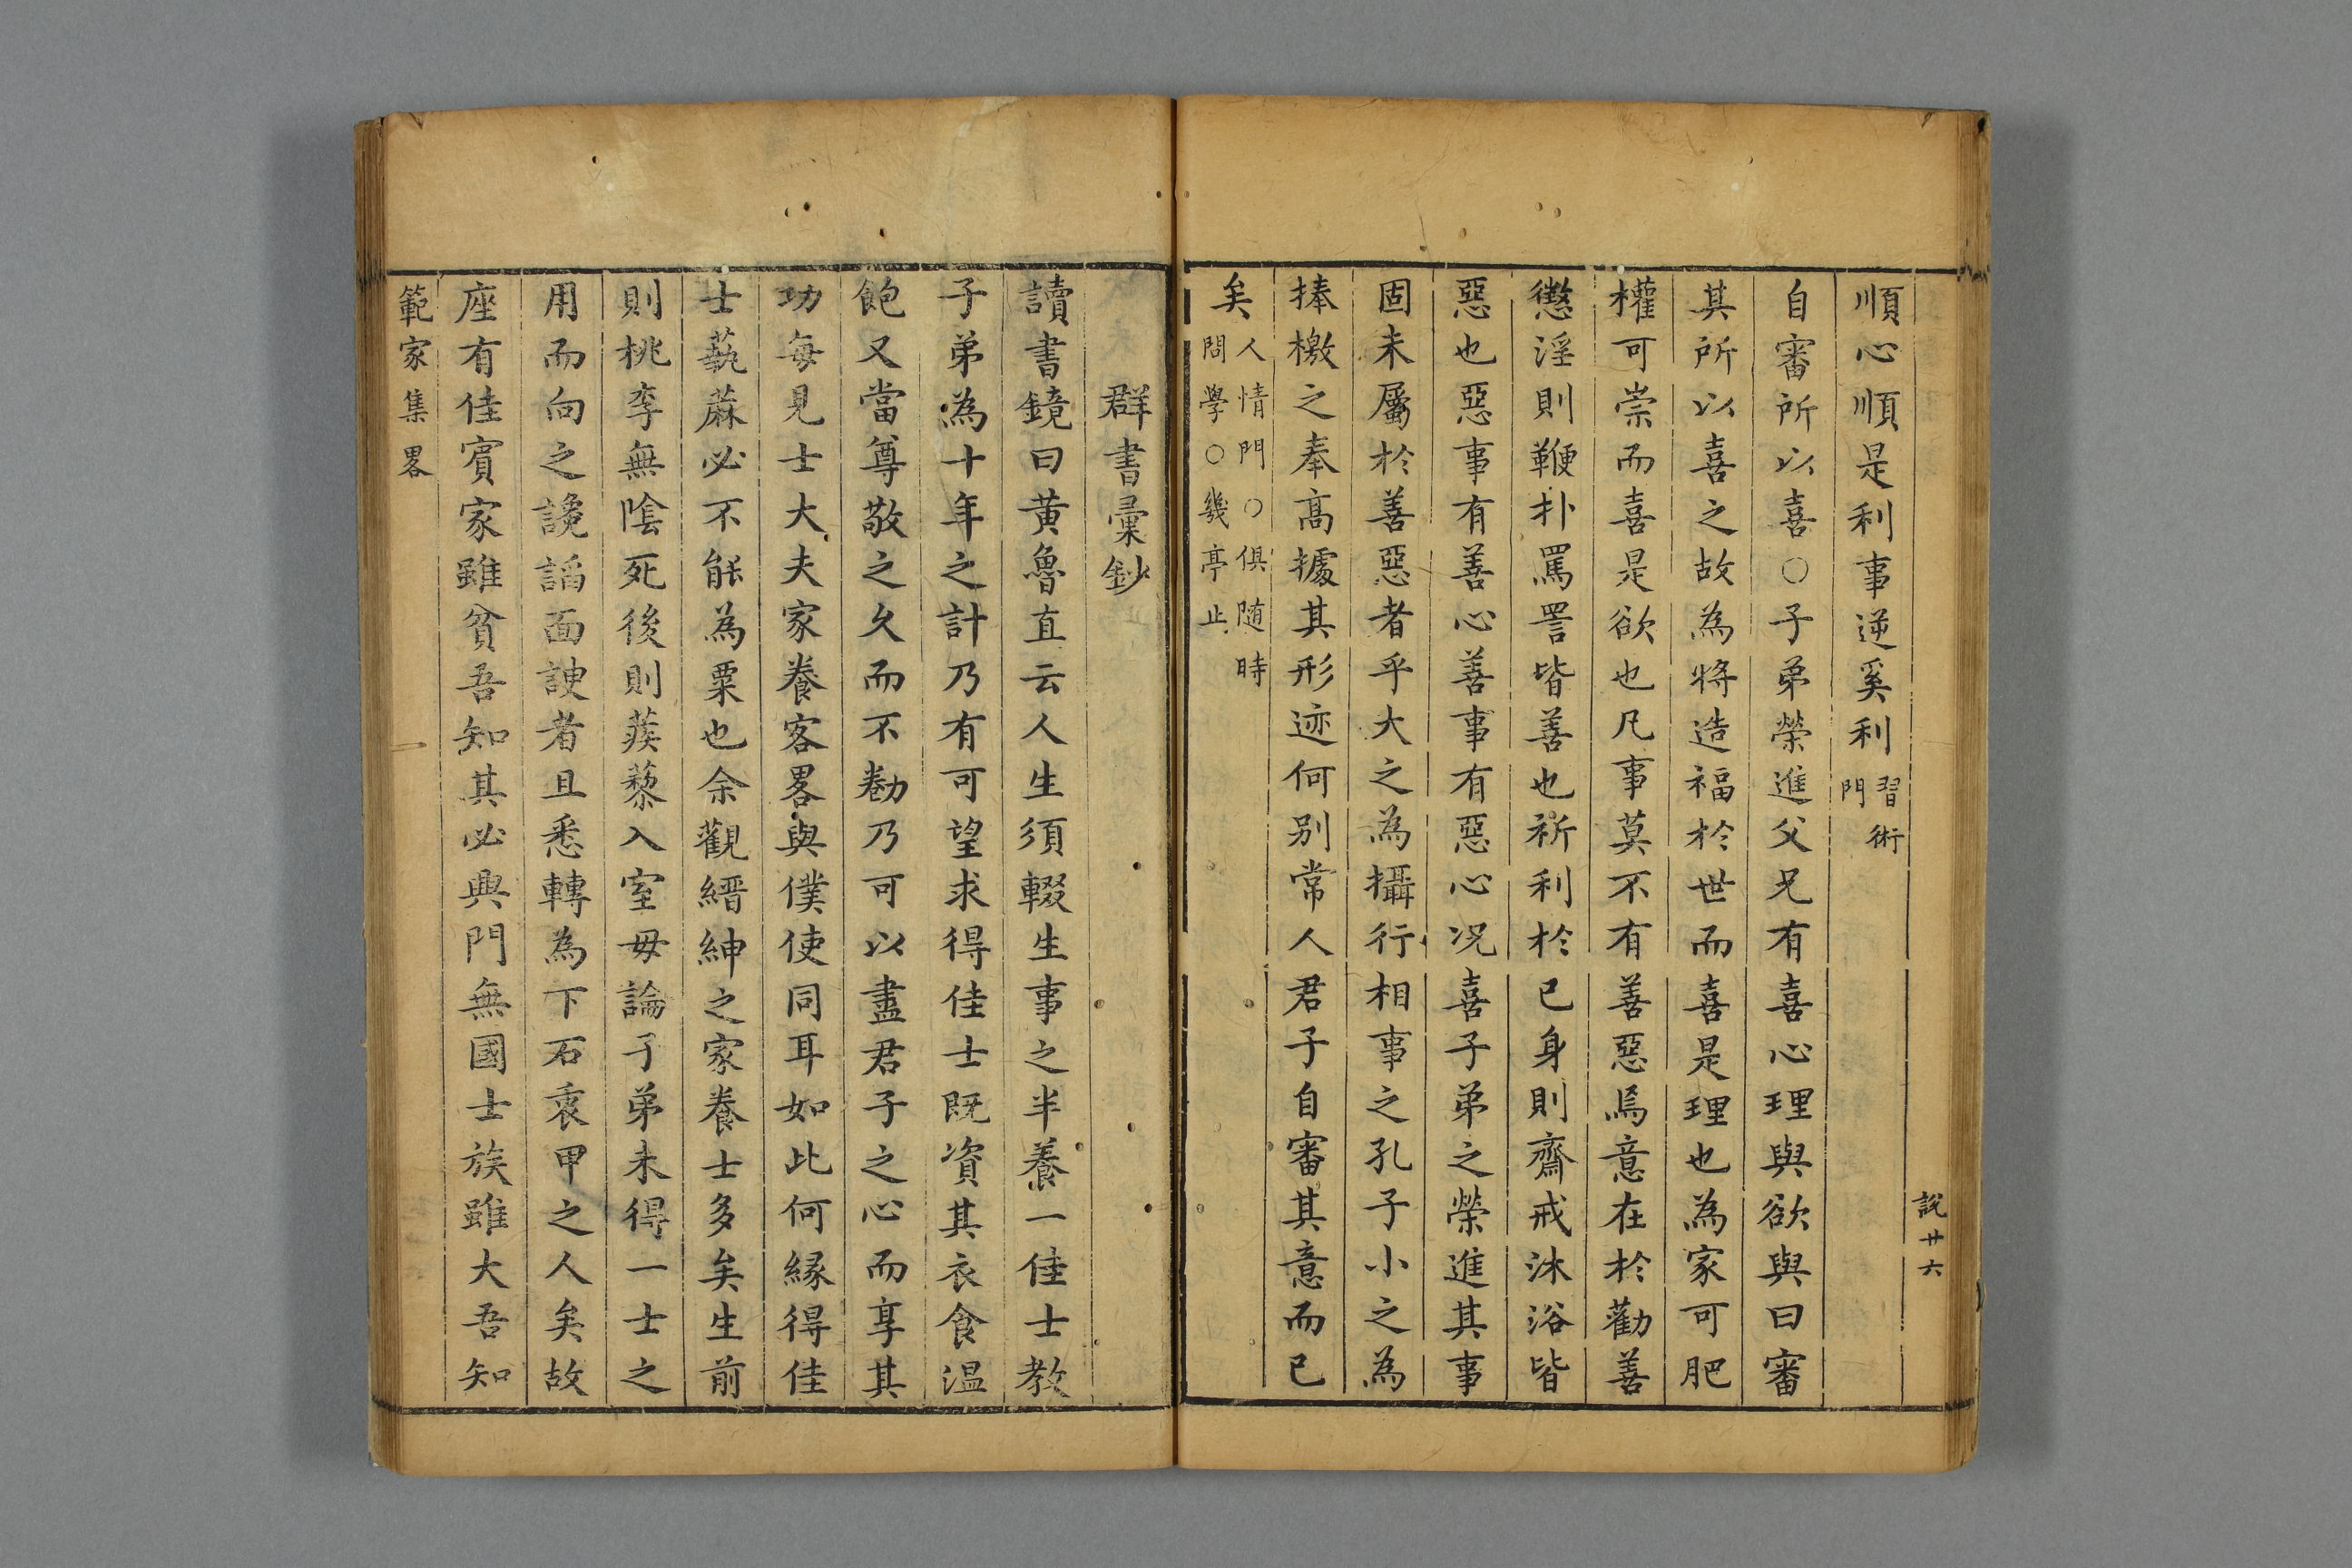 順心順是利事逆奚利習術門
自審所以喜○子弟榮進父兄有喜心理與欲與曰審
其所以喜之故為將造福於世而喜是理也為家可肥
權可崇而喜是欲也凡事莫不有善惡焉意在於勸善
懲淫則鞭扑罵詈皆善也祈利於已身則齋戒沐浴皆
惡也惡事有善心善事有惡心况喜子弟之榮進其事
固未屬於善惡者乎大之為攝行相事之孔子小之為
捧檄之奉高據其形迹何别常人君子自審其意而已
矣人情門○俱随時問學○幾亭止
說廿六
群書彚鈔
讀書鏡曰黄魯直云人生須輟生事之半養一佳士教
子弟為十年之計乃有可望求得佳士既資其衣食温
飽又當尊敬之久而不勌乃可以盡君子之心而享其
功每見士大夫家養客畧與僕使同耳如此何緣得佳
士蓺蔴必不能為粟也余觀縉紳之家養士多矣生前
則桃李無隂死後則蒺藜入室毋論子弟未得一士之
用而向之讒謟面諛者且悉轉為下石衷甲之人矣故
座有佳賓家雖貧吾知其必興門無國士族雖大吾知
範家集畧